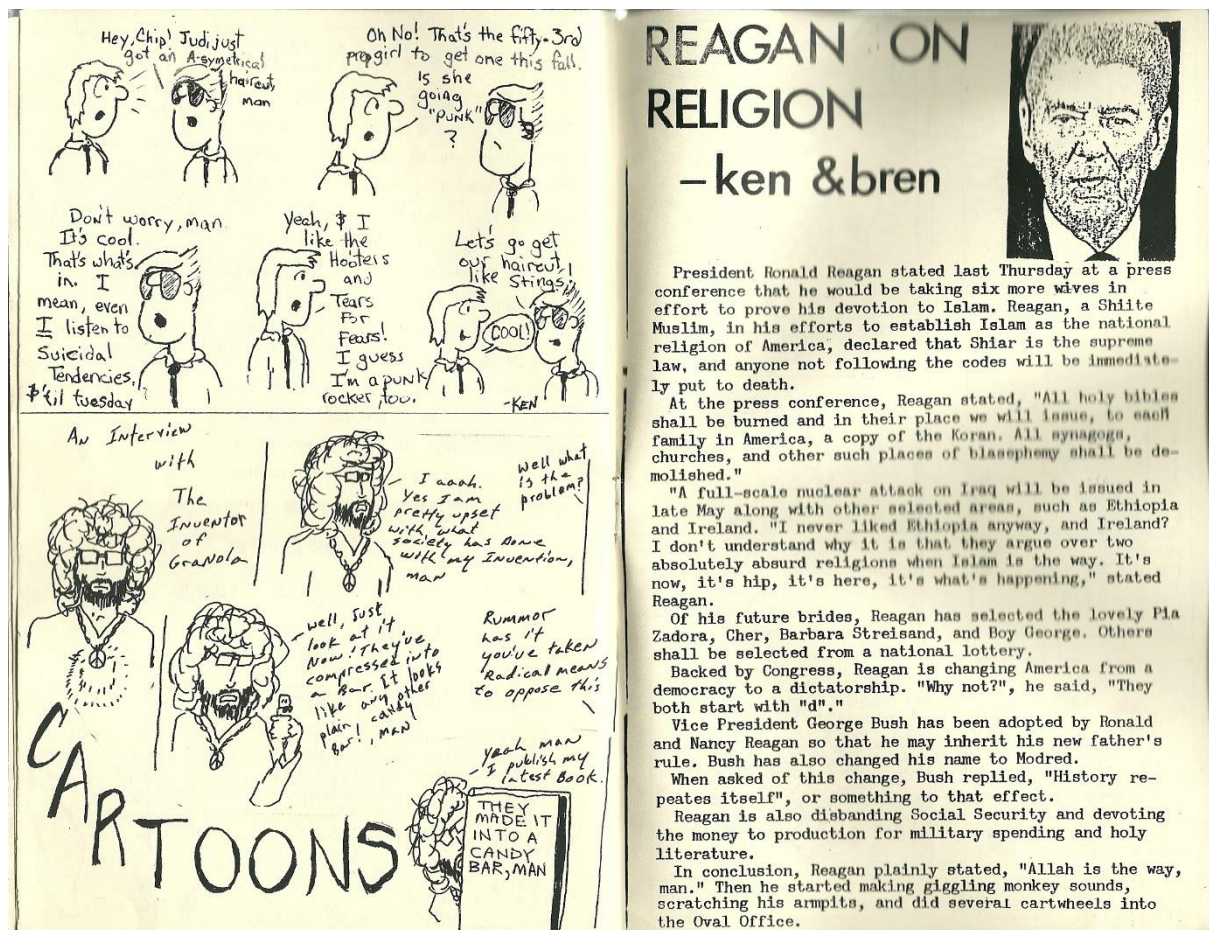 Hey, Chip! Judi just
got an A-symetrical
haircut,
man
Oh No! That's the fifty-3rd
prep girl to get one this fall.
Is she
going
"punk"
?
Don't worry, man.
It's cool.
That's what's
in. I
mean, even
I listen to
Suicidal
Tendencies,
$ 'til tuesday
Yeah, $ I
like the
Hooters
and
Tears
For
Fears!
I guess
I'm a punk
rocker, too.
Let's go get
our haircut
like Stings!
COOL!
-KEN
An Interview
with
The
Inventor
of
Granola
I aaah.
Yes I am
pretty upset
with what
society has done
with my Invention,
man
Well what
is the
problem?
well, Just
look at it
Now! They've
compressed into
a Bar. It looks
like any other
plain candy
Bar!, man
Rummor
has it
you've taken
Radical means
to oppose this
yeah man
I publish my
latest Book.
THEY
MADE IT
INTO A
CANDY
BAR, MAN
CARTOONS
REAGAN ON
RELIGION
-ken &bren
President Ronald Reagan stated last Thursday at a press
conference that he would be taking six more wives in
effort to prove his devotion to Islam. Reagan, a Shiite
Muslim, in his efforts to establish Islam as the national
religion of America, declared that Shiar is the supreme
law, and anyone not following the codes will be immediate-
ly put to death.
At the press conference, Reagan stated, "All holy bibles
shall be burned and in their place we will issue, to each
family in America, a copy of the Koran. All synagogs,
churches, and other such places of blasephemy shall be de-
molished."
"A full-scale nuclear attack on Iraq will be issued in
late May along with other selected areas, such as Ethiopia
and Ireland. "I never liked Ethiopia anyway, and Ireland?
I don't understand why it is that they argue over two
absolutely absurd religions when Islam is the way. It's
now, it's hip, it's here, it's what's happening," stated
Reagan.
Of his future brides, Reagan has selected the lovely Pia
Zadora, Cher, Barbara Streisand, and Boy George. Others
shall be selected from a national lottery.
Backed by Congress, Reagan is changing America from a
democracy to a dictatorship. "Why not?", he said, "They
both start with "d"."
Vice President George Bush has been adopted by Ronald
and Nancy Reagan so that he may inherit his new father's
rule. Bush has also changed his name to Modred.
When asked of this change, Bush replied, "History re-
peates itself", or something to that effect.
Reagan is also disbanding Social Security and devoting
the money to production for military spending and holy
literature.
In conclusion, Reagan plainly stated, "Allah is the way,
man." Then he started making giggling monkey sounds,
scratching his armpits, and did several cartwheels into
the Oval Office.